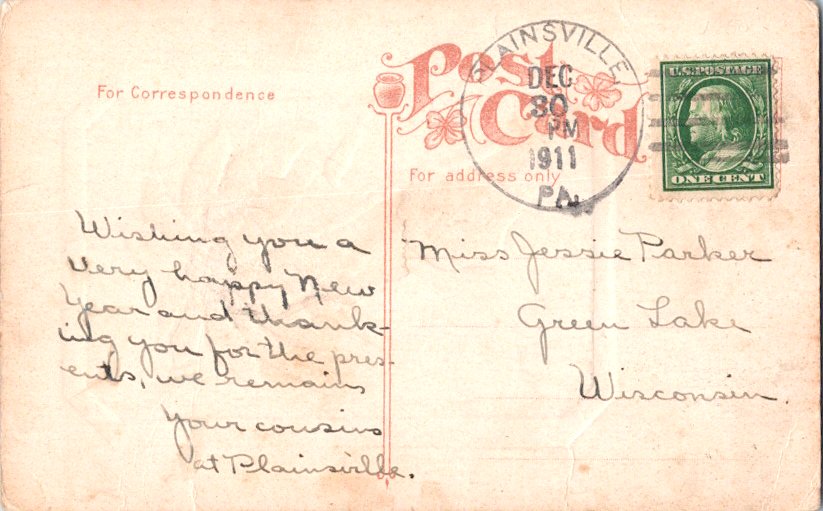 For Correspondence
Post
Card
For address only
PLAINSVILLE,
DEC
30
PM
1911
PA.
U.S. POSTAGE
ONE CENT
Wishing you a
very happy New
Year and thank-
ing you for the pres-
ents, we remain
Your cousins
at Plainsville.
Miss Jessie Parker
Green Lake
Wisconsin.